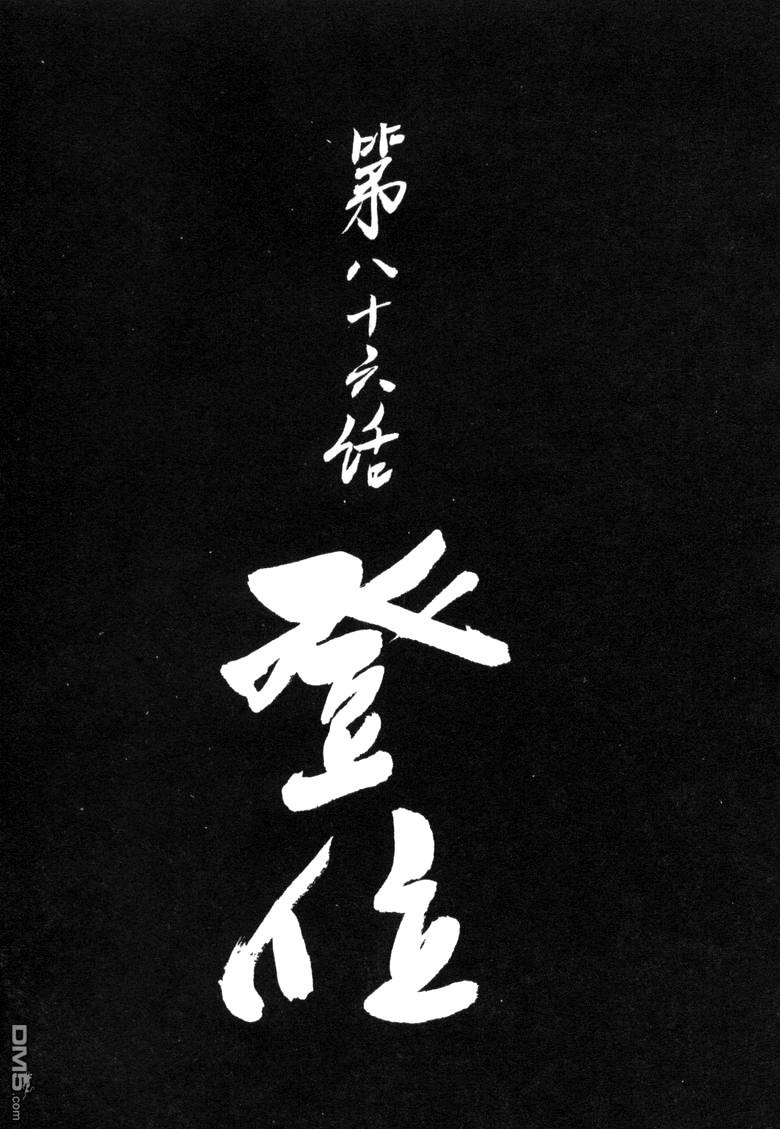 第八十六話
登位
DM5.com